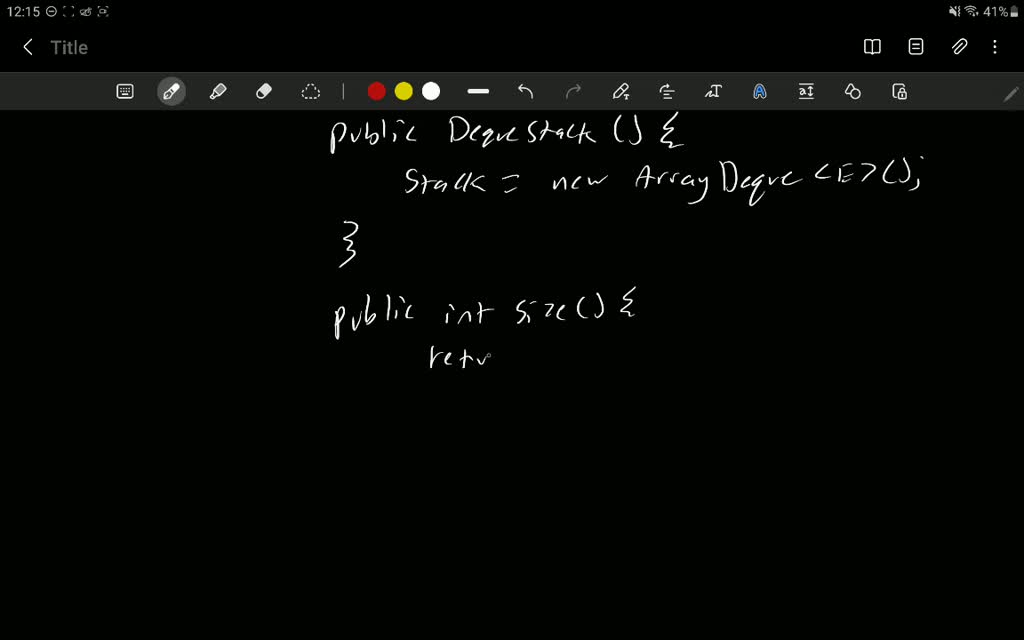 12:15
41%
Title
public DequeStack () {
Stack = new ArrayDeque <E>();
}
public int size() {
retu